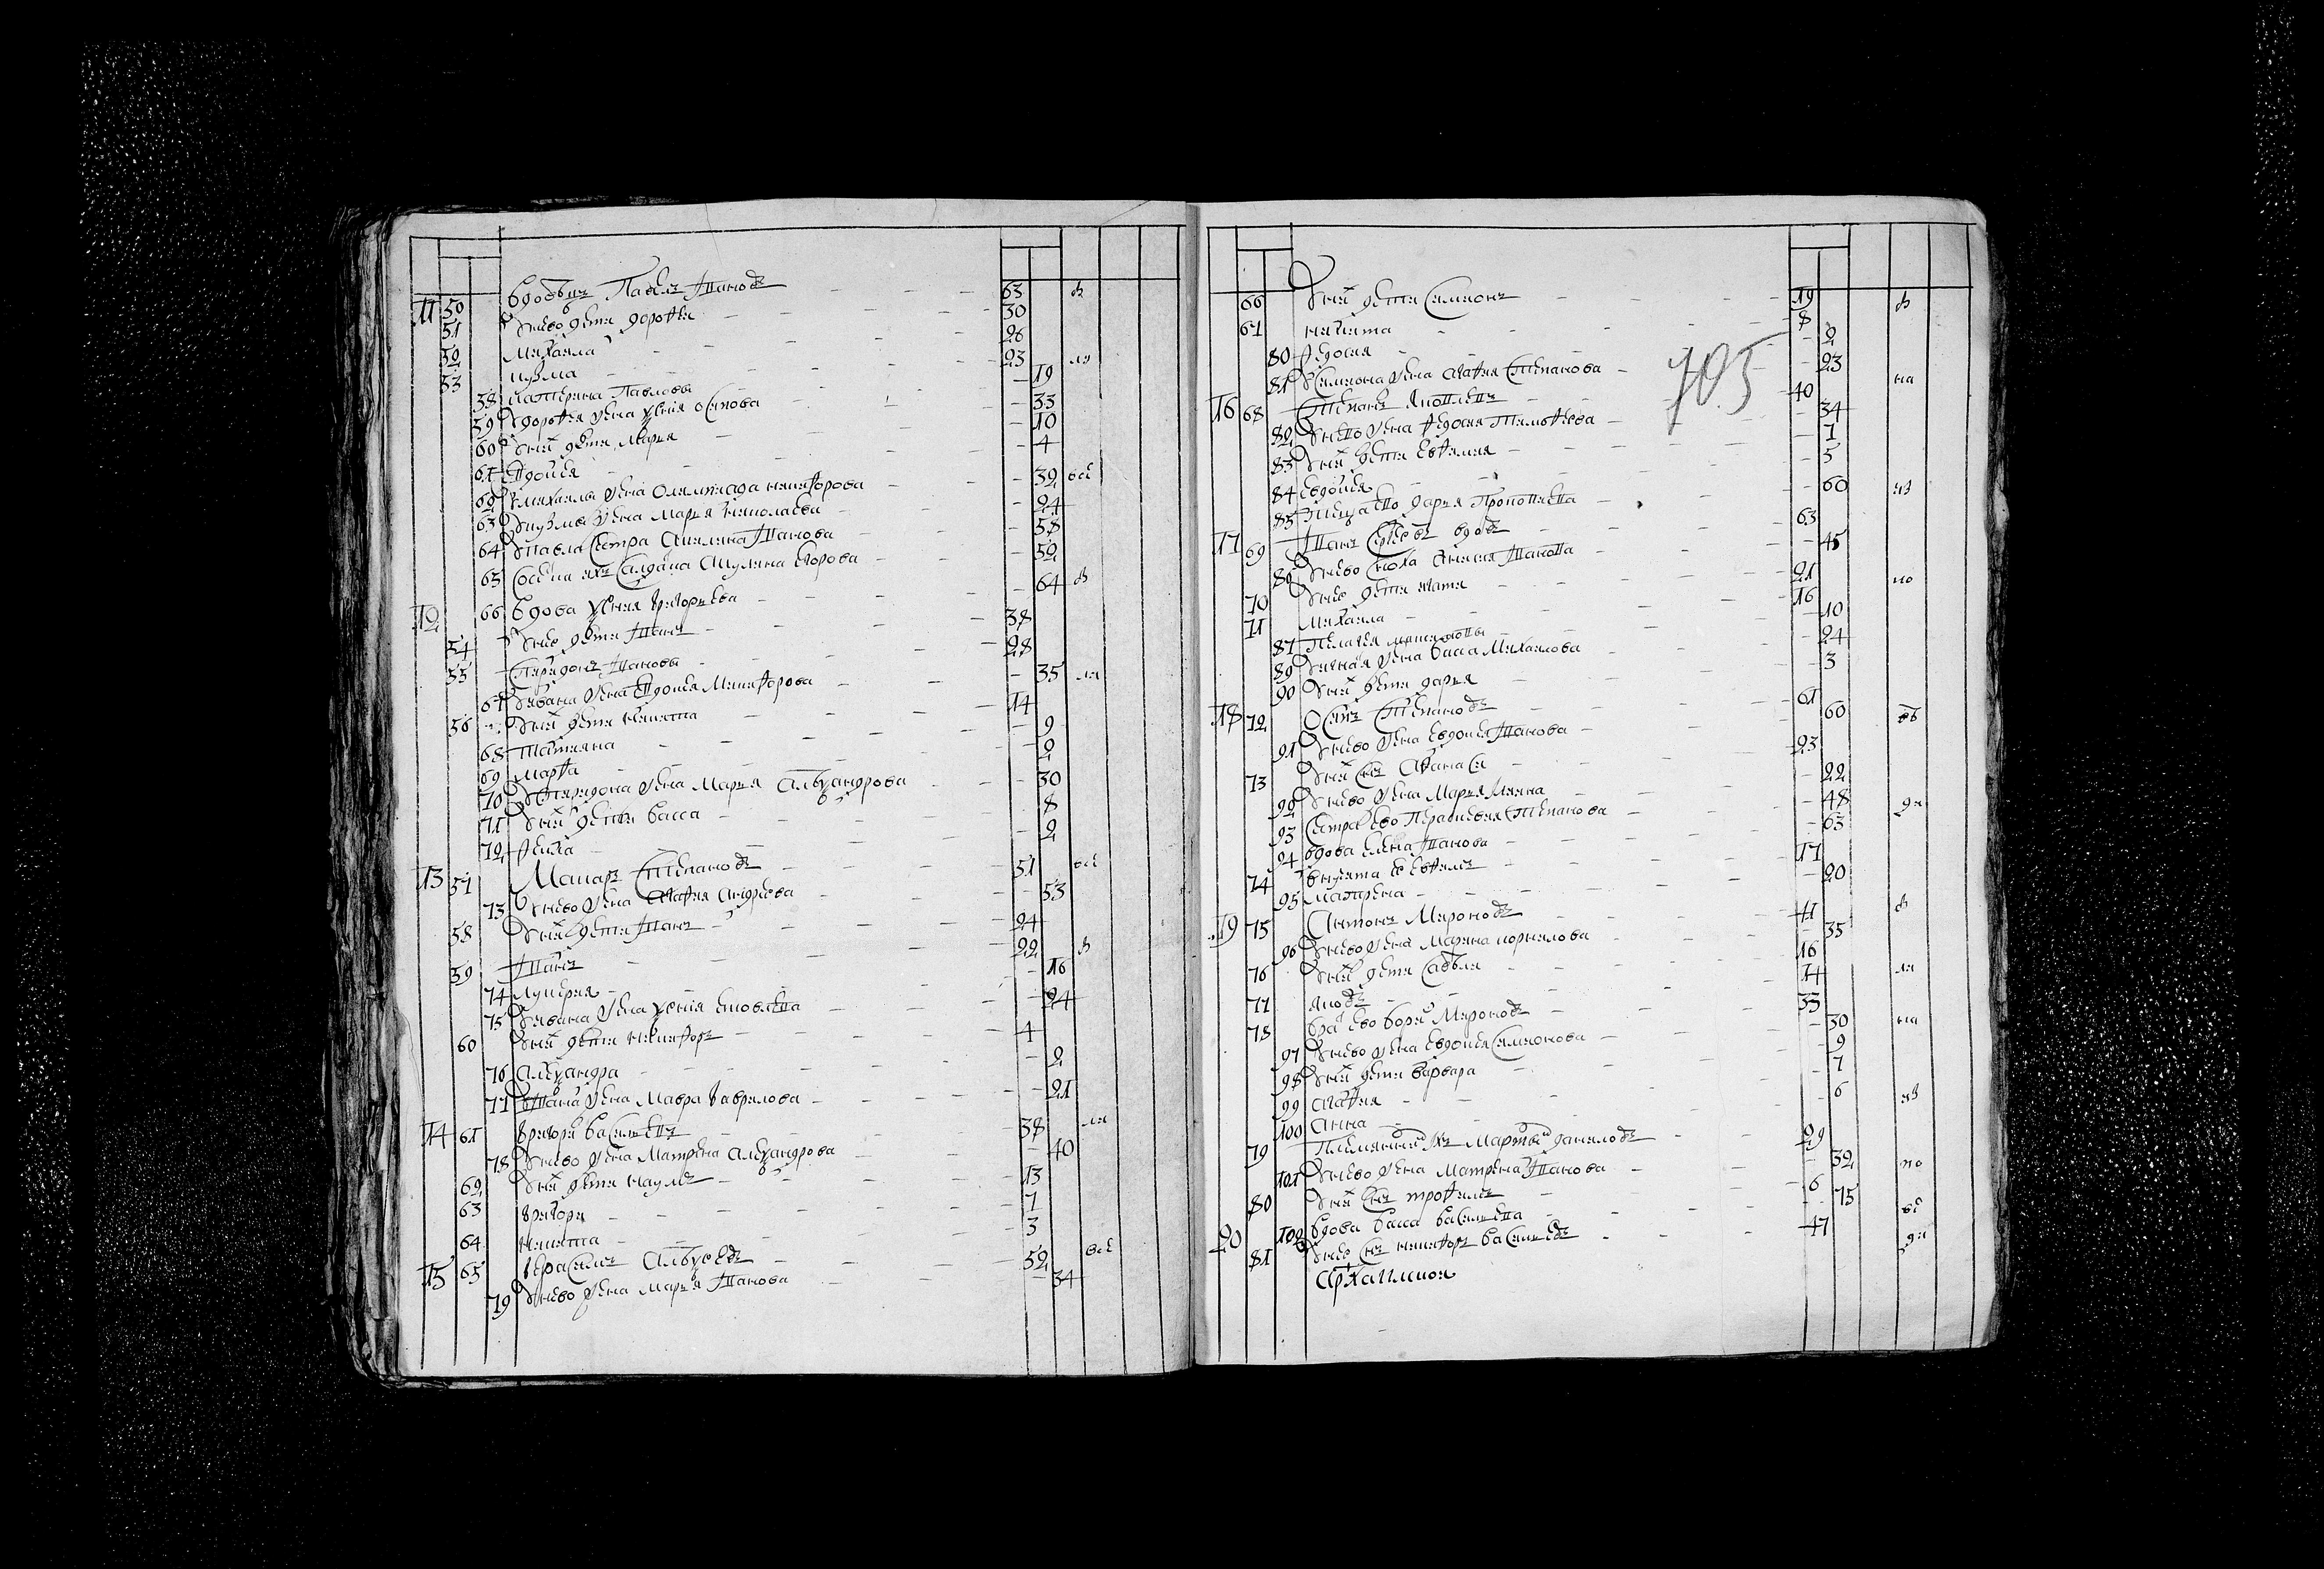 11 50 вдовыи Павелъ Ивановъ 63
51 у него дети Дорофеи 30
52 Михаила 26
53 Кузма 23
58 Катерина Павловы 19
59 у Дорофея жена Ксения Осипова 33
60 у них дети Марья 10
61 Евдокея 4
62 у Михаилы жена Олимпиада Никифорова 39
63 у Кузмы жена Марья Николаева 24
64 у Павла сестра Акилина Иванова 58
65 Салдатка Акулина Егорова 52
12 66 вдова Ксения Григорьева 64
54 у нее дети Иванъ 38
55 Спиридонъ Ивановы 28
67 у Ивана жена Евдокея Никифорова 35
56 у них дети Никита 14
68 Татияна 9
69 Марфа 2
70 у Спиридона жена Марья Александрова 30
71 у них дети Васса 8
72 Фекла 2
13 57 Макаръ Степановъ 51
73 у него жена Агафия Андреева 53
58 у них дети Иванъ 24
59 Иванъ 22
74 Лукерия 16
75 у Ивана жена Ксения 24
60 у них дети Никифоръ 4
76 Александра 2
77 у Ивана жена Мавра Гаврилова 21
14 61 Григореи Васильевъ 38
78 у него жена Матрена Александрова 40
62 у них дети Наумъ 13
63 Григореи 7
64 Никита 3
15 65 Герасимъ Алексеевъ 52
79 у него жена Марья Иванова 34
705
66 у них дети Симионъ 19
67 Никита 8
80 Федосия 2
81 у Симиона жена Агафия Степанова 23
16 68 Степанъ Яковлевъ 40
82 у него жена Федосия Тимофеева 34
83 у них дети Евфимия 7
84 Евдокея 5
85 Дарья Прокопиева 60
17 69 Иванъ Сергеевъ вдовъ 63
86 у него сноха Анисия Иванова 45
70 у нее дети 21
71 Михаила 16
87 Пелагея 10
89 жена Васа Михаилова 24
90 у них дети Дарья 3
18 72 Осипъ Степановъ 61
91 у него жена Евдокея Иванова 60
73 у них сынъ Афанасеи 23
92 у него жена Марья 22
93 сестра ево Парасковия Степанова 48
94 вдова Елена Иванова 63
74 17
95 Матрена 20
19 75 Антонъ Мироновъ 41
96 у него жена Марина Корнилова 35
76 у них дети Савелеи 16
77 Яковъ 14
78 братъ ево Борисъ Мироновъ 33
97 у него жена Евдокея Симионова 30
98 у них дети Варвара 9
99 Агафия 7
100 Анна 6
79 Племянникъ их Мартынъ Даниловъ 29
101 у него жена Матрена Иванова 32
80 у них сынъ Трофимъ 6
20 102 вдова Васса Васильева 75
81 у нее сынъ Никифоръ Васильевъ 47